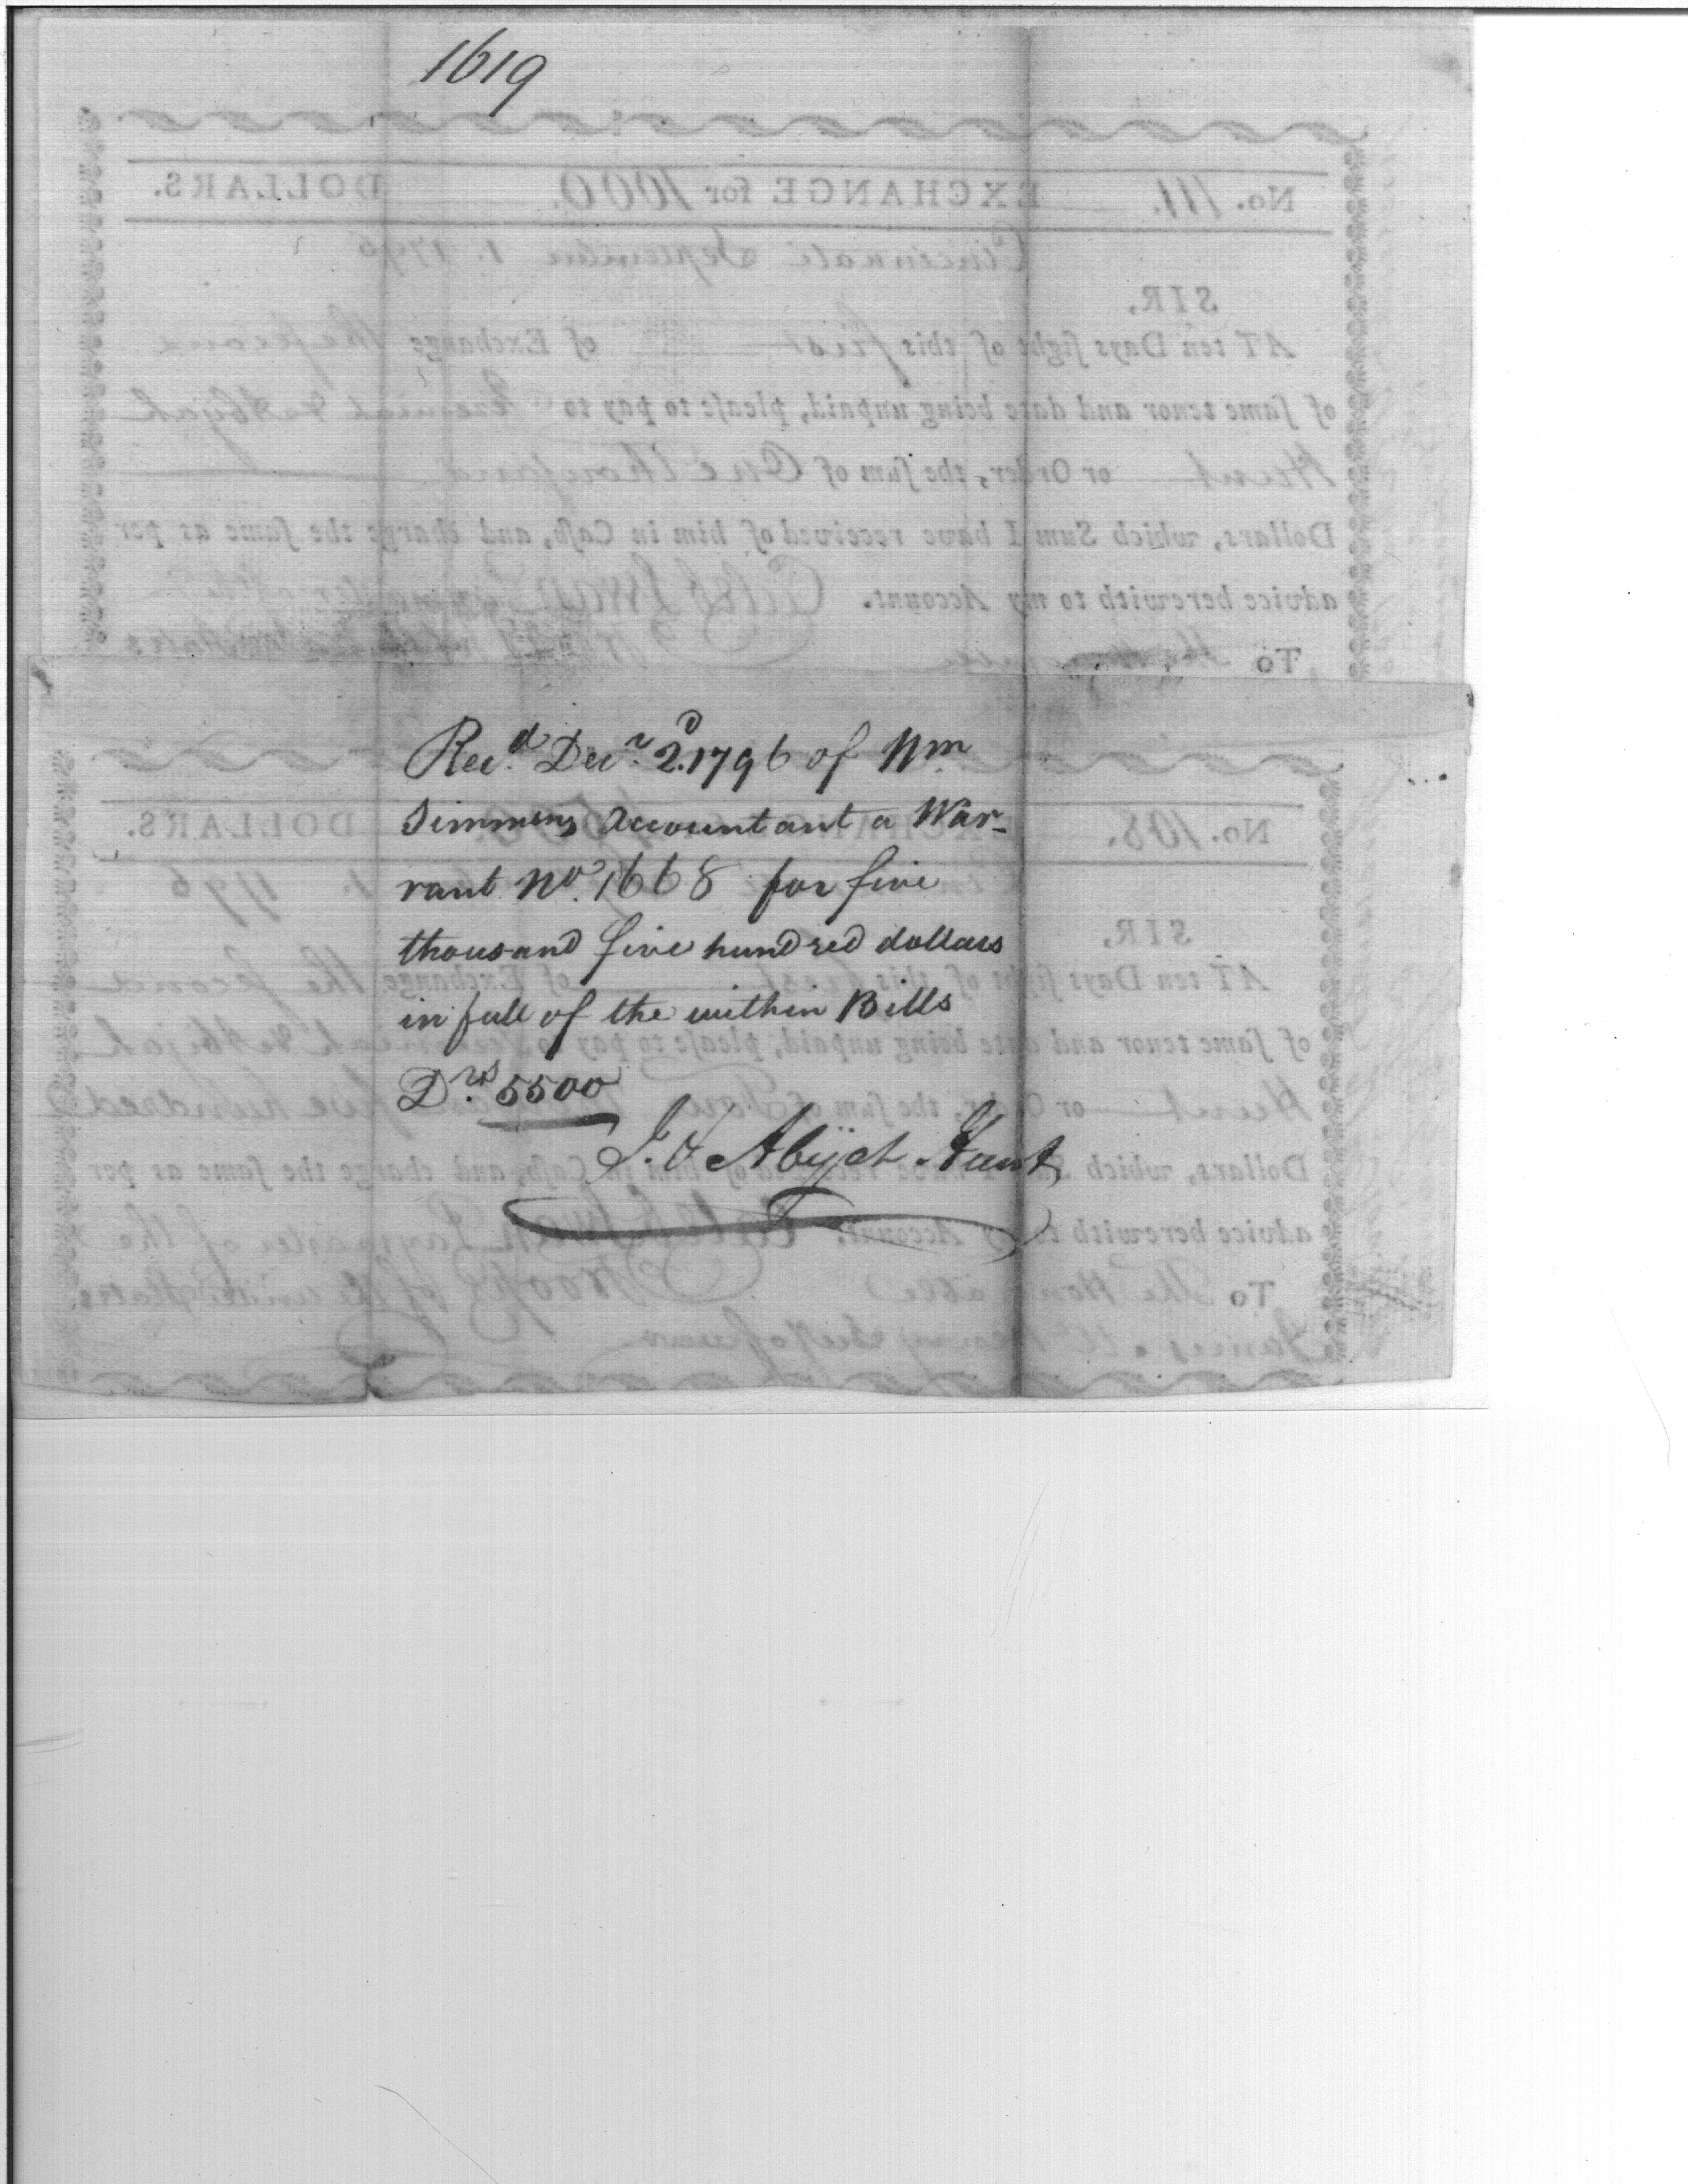 1619
No. 111. EXCHANGE for 1000 DOLLARS.
Cincinnati September 1. 1796
SIR,
AT ten Days sight of this first of Exchange, the second
of same tenor and date being unpaid, please to pay to Jeremiah & Abijah
Hunt or Order, the sum of One thousand
Dollars, which Sum I have received of him in Cash, and charge the same as per
advice herewith to my Account. Caleb Swan Paymaster
To
Recd. Decr. 2d. 1796 of Wm
Simmons Accountant a War-
rant No. 1668 for five
thousand five hundred dollars
in full of the within Bills
Drs. 5500
J. & Abijah Hunt
No. 108. DOLLARS.
1. 1796
SIR,
AT ten Days sight of this first of Exchange, the second
of same tenor and date being unpaid, please to pay to Jeremiah & Abijah
Hunt or Order, the sum of Four five hundred
Dollars, which Sum I have received of him in Cash, and charge the same as per
advice herewith to my Account. Caleb Swan Paymaster of the
To The Honorable Troops of the united States
James McHenry Secy of war